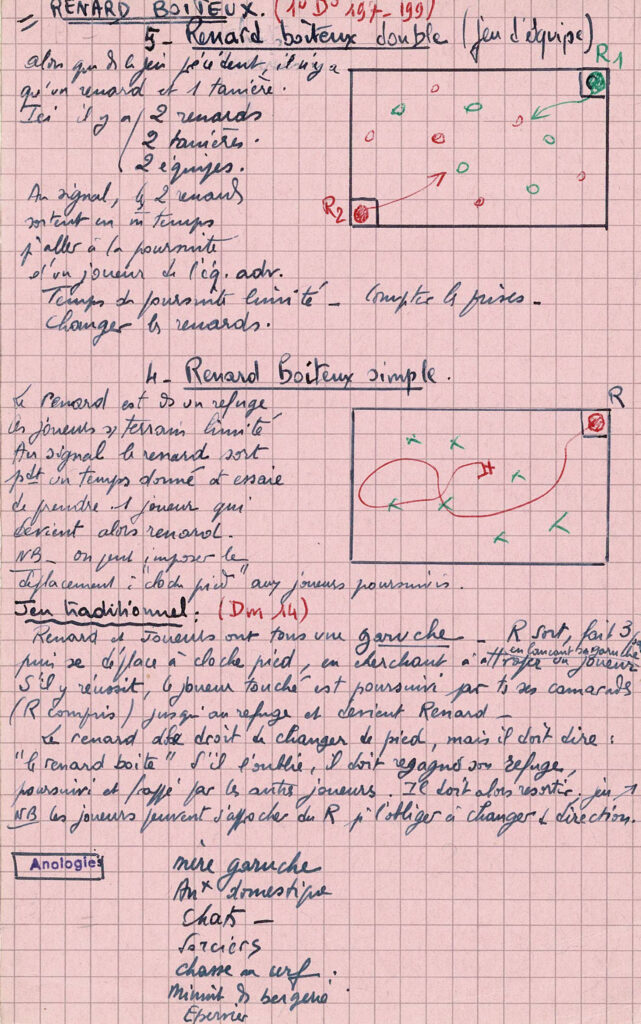 = RENARD BOITEUX. (1° D° 197 - 199)
5 - Renard boiteux double (jeu d'équipe)
alors que ds le jeu précédent, il n'y a
qu'un renard et 1 tanière.
Ici il y a 2 renards
2 tanières.
2 équipes.
R1
R2
Au signal, les 2 renards
sortent en m temps
p'aller à la poursuite
d'un joueur de l'éq. adv.
Temps de poursuite limité - Compter les prises -
Changer les renards.
4 - Renard Boiteux simple.
Le renard est ds un refuge
les joueurs s/ terrain limité
Au signal le renard sort
pdt un temps donné et essaie
de prendre 1 joueur qui
devient alors renard.
NB - on peut imposer le
déplacement à "cloche pied" aux joueurs poursuivis.
R
Jeu traditionnel : (Dm 14)
Renard et Joueurs ont tous une garuche - R sort, fait 3 pas
puis se déplace à cloche pied, en cherchant à attraper un joueur
en lançant sa garuche
S'il y réussit, le joueur touché est poursuivi par ts ses camarades
(R compris) jusqu'au refuge et devient Renard -
Le renard a droit de changer de pied, mais il doit dire :
"le renard boite" S'il l'oublie, il doit regagner son refuge,
poursuivi et frappé par les autres joueurs. Il doit alors ressortir.
NB les joueurs peuvent s'approcher du R p/ l'obliger à changer de direction.
Analogies
mère garuche
Anx domestique
Chats -
Sorciers
chasse au cerf.
Minuit ds bergerie
Epervier